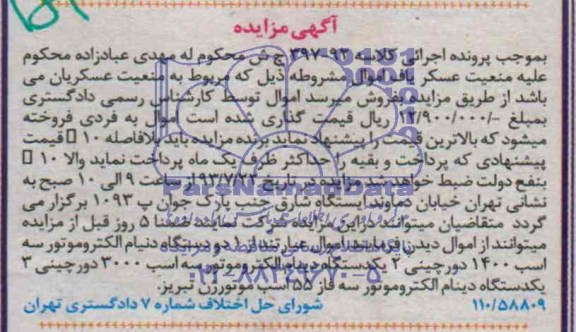 آگهی مزایده
بموجب پرونده اجرائی کلاسه ۳۹۷-۹۳ ج ش محکوم له مهدی عبادزاده محکوم
علیه منعیت عسکر یافت اموال مشروطه ذیل که مربوط به منعیت عسکریان می
باشد از طریق مزایده بفروش میرسد اموال توسط کارشناس رسمی دادگستری
بمبلغ -/۱۲/۹۰۰/۰۰۰ ریال قیمت گذاری شده است اموال به فردی فروخته
میشود که بالاترین قیمت را پیشنهاد نماید برنده مزایده باید بلافاصله ۱۰ قیمت
پیشنهادی که پرداخت و بقیه را حداکثر ظرف یک ماه پرداخت نماید والا ۱۰
بنفع دولت ضبط خواهد شد مزایده در تاریخ ۹۳/۷/۲۲ از ساعت ۹ الی ۱۰ صبح به
نشانی تهران خیابان دماوند ایستگاه شارق جنب پارک جوان پ ۱۰۹۳ برگزار می
گردد متقاضیان میتوانند در این مزایده شرکت نمایند ضمنا ۵ روز قبل از مزایده
میتوانند از اموال دیدن فرمایند اموال عبارتند از ۱ دو دستگاه دنیام الکتروموتور سه
اسب ۱۴۰۰ دورچینی ۲ یکدستگاه دینام الکتروموتور سه اسب ۳۰۰۰ دورچینی ۳
یکدستگاه دینام الکتروموتور سه فاز ۵۵ اسب موتورژن تبریز.
۱۱۰/۵۸۸۰۹ شورای حل اختلاف شماره ۷ دادگستری تهران
ParsNamadData
۰۲۱-۸۸۳۴۹۶۷۰-۵